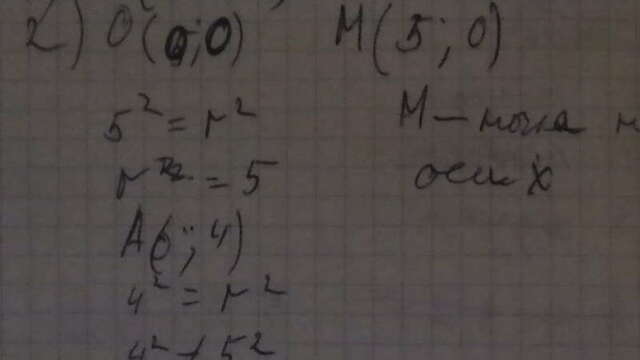 2) O(0;0) M(5;0)
5² = r² M – точка н
r = 5 оси x
A(0;4)
4² = r²
4² ≠ 5²